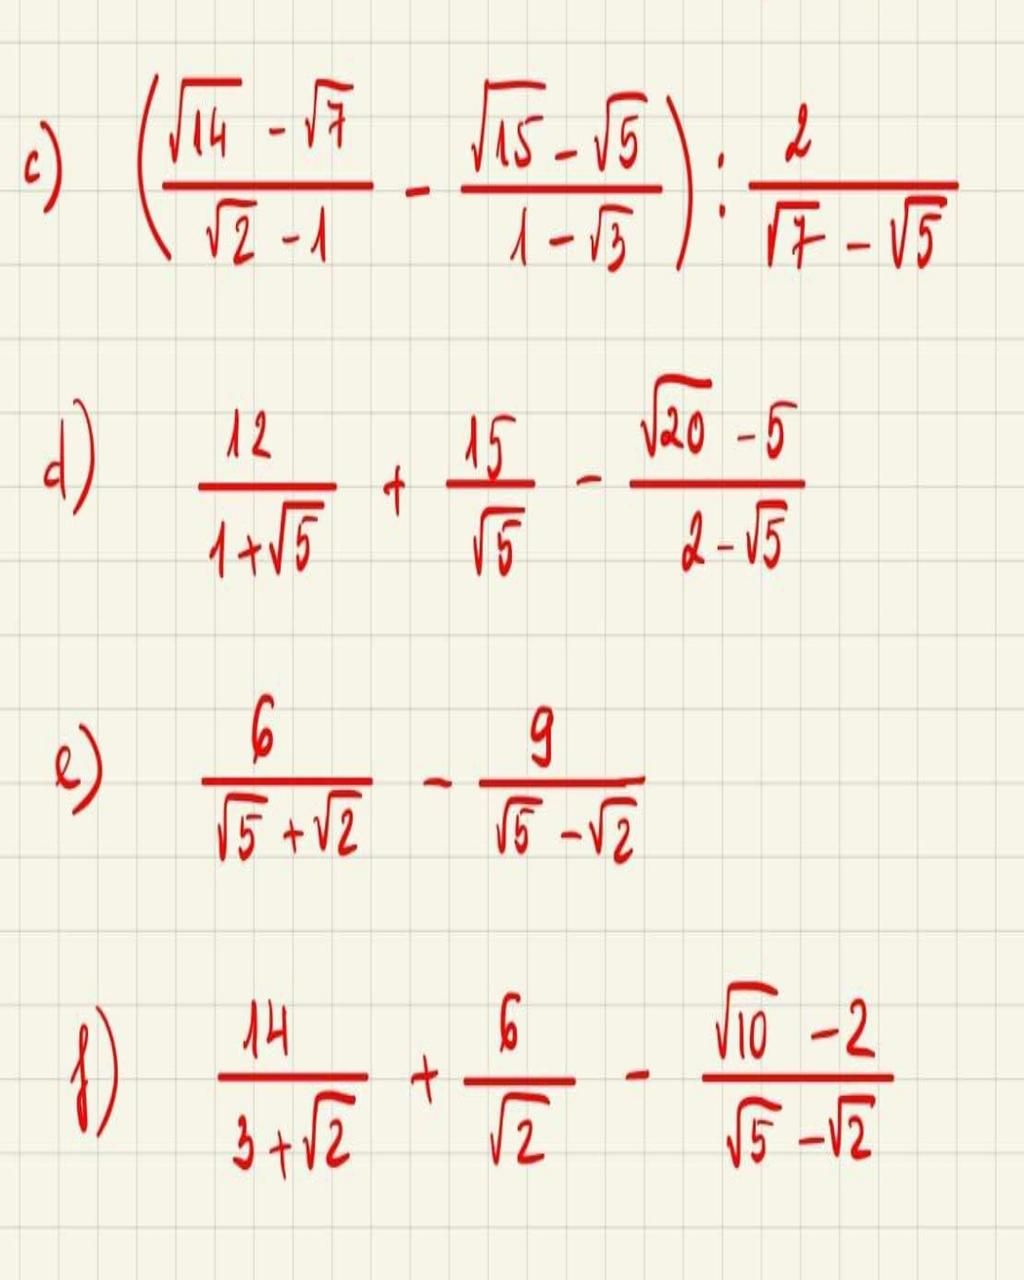 c) (√14 - √7 / √2 - 1 - √15 - √5 / 1 - √3) : 2 / √7 - √5
d) 12 / 1 + √5 + 15 / √5 - √20 - 5 / 2 - √5
e) 6 / √5 + √2 - 9 / √5 - √2
f) 14 / 3 + √2 + 6 / √2 - √10 - 2 / √5 - √2